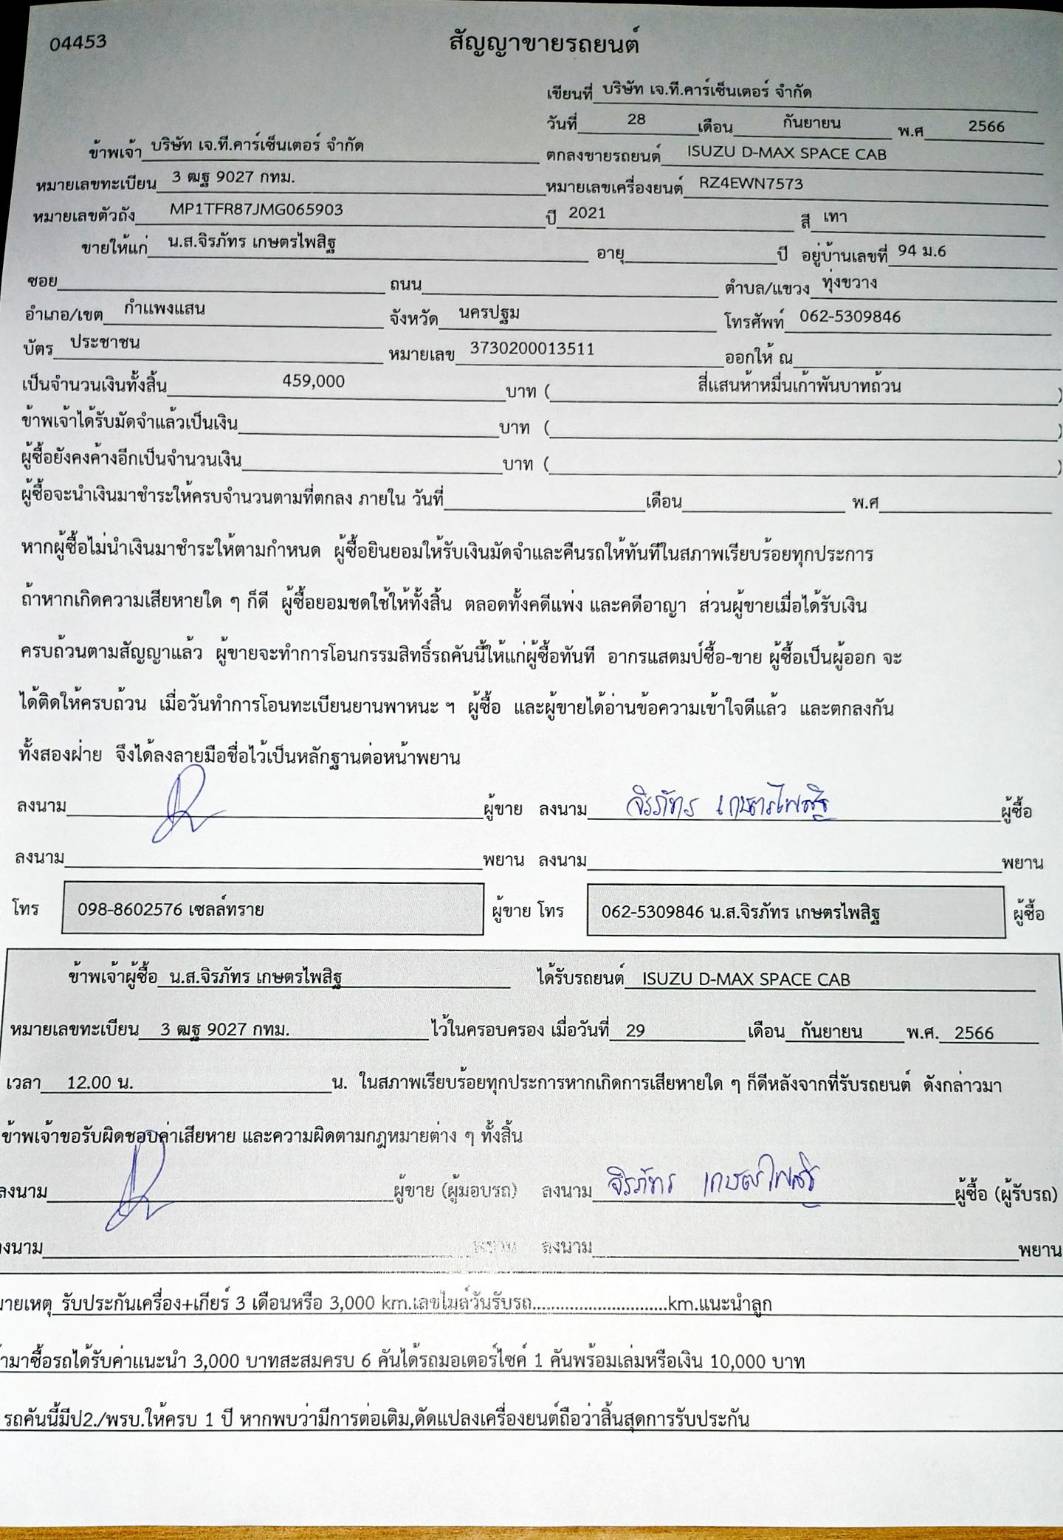 04453
สัญญาขายรถยนต์
เขียนที่ บริษัท เจ.ที.คาร์เซ็นเตอร์ จำกัด
วันที่ 28 เดือน กันยายน พ.ศ 2566
ข้าพเจ้า บริษัท เจ.ที.คาร์เซ็นเตอร์ จำกัด ตกลงขายรถยนต์ ISUZU D-MAX SPACE CAB
หมายเลขทะเบียน 3 ฒฐ 9027 กทม. หมายเลขเครื่องยนต์ RZ4EWN7573
หมายเลขตัวถัง MP1TFR87JMG065903 ปี 2021 สี เทา
ขายให้แก่ น.ส.จิรภัทร เกษตรไพสิฐ อายุ ปี อยู่บ้านเลขที่ 94 ม.6
ซอย ถนน ตำบล/แขวง ทุ่งขวาง
อำเภอ/เขต กำแพงแสน จังหวัด นครปฐม โทรศัพท์ 062-5309846
บัตร ประชาชน หมายเลข 3730200013511 ออกให้ ณ
เป็นจำนวนเงินทั้งสิ้น 459,000 บาท ( สี่แสนห้าหมื่นเก้าพันบาทถ้วน )
ข้าพเจ้าได้รับมัดจำแล้วเป็นเงิน บาท ( )
ผู้ซื้อยังคงค้างอีกเป็นจำนวนเงิน บาท ( )
ผู้ซื้อจะนำเงินมาชำระให้ครบจำนวนตามที่ตกลง ภายใน วันที่ เดือน พ.ศ
หากผู้ซื้อไม่นำเงินมาชำระให้ตามกำหนด ผู้ซื้อยินยอมให้รับเงินมัดจำและคืนรถให้ทันทีในสภาพเรียบร้อยทุกประการ
ถ้าหากเกิดความเสียหายใด ๆ ก็ดี ผู้ซื้อยอมชดใช้ให้ทั้งสิ้น ตลอดทั้งคดีแพ่ง และคดีอาญา ส่วนผู้ขายเมื่อได้รับเงิน
ครบถ้วนตามสัญญาแล้ว ผู้ขายจะทำการโอนกรรมสิทธิ์รถคันนี้ให้แก่ผู้ซื้อทันที อากรแสตมป์ซื้อ-ขาย ผู้ซื้อเป็นผู้ออก จะ
ได้ติดให้ครบถ้วน เมื่อวันทำการโอนทะเบียนยานพาหนะ ฯ ผู้ซื้อ และผู้ขายได้อ่านข้อความเข้าใจดีแล้ว และตกลงกัน
ทั้งสองฝ่าย จึงได้ลงลายมือชื่อไว้เป็นหลักฐานต่อหน้าพยาน
ลงนาม ผู้ขาย ลงนาม จิรภัทร เกษตรไพสิฐ ผู้ซื้อ
ลงนาม พยาน ลงนาม พยาน
โทร 098-8602576 เซลล์ทราย ผู้ขาย โทร 062-5309846 น.ส.จิรภัทร เกษตรไพสิฐ ผู้ซื้อ
ข้าพเจ้าผู้ซื้อ น.ส.จิรภัทร เกษตรไพสิฐ ได้รับรถยนต์ ISUZU D-MAX SPACE CAB
หมายเลขทะเบียน 3 ฒฐ 9027 กทม. ไว้ในครอบครอง เมื่อวันที่ 29 เดือน กันยายน พ.ศ. 2566
เวลา 12.00 น. น. ในสภาพเรียบร้อยทุกประการหากเกิดการเสียหายใด ๆ ก็ดีหลังจากที่รับรถยนต์ ดังกล่าวมา
ข้าพเจ้าขอรับผิดชอบค่าเสียหาย และความผิดตามกฎหมายต่าง ๆ ทั้งสิ้น
ลงนาม ผู้ขาย (ผู้มอบรถ) ลงนาม จิรภัทร เกษตรไพสิฐ ผู้ซื้อ (ผู้รับรถ)
งนาม พยาน ลงนาม พยาน
ายเหตุ รับประกันเครื่อง+เกียร์ 3 เดือนหรือ 3,000 km.เลขไมล์วันรับรถ............................km.แนะนำลูก
ามาซื้อรถได้รับค่าแนะนำ 3,000 บาทสะสมครบ 6 คันได้รถมอเตอร์ไซค์ 1 คันพร้อมเล่มหรือเงิน 10,000 บาท
รถคันนี้มีป2./พรบ.ให้ครบ 1 ปี หากพบว่ามีการต่อเติม,ดัดแปลงเครื่องยนต์ถือว่าสิ้นสุดการรับประกัน